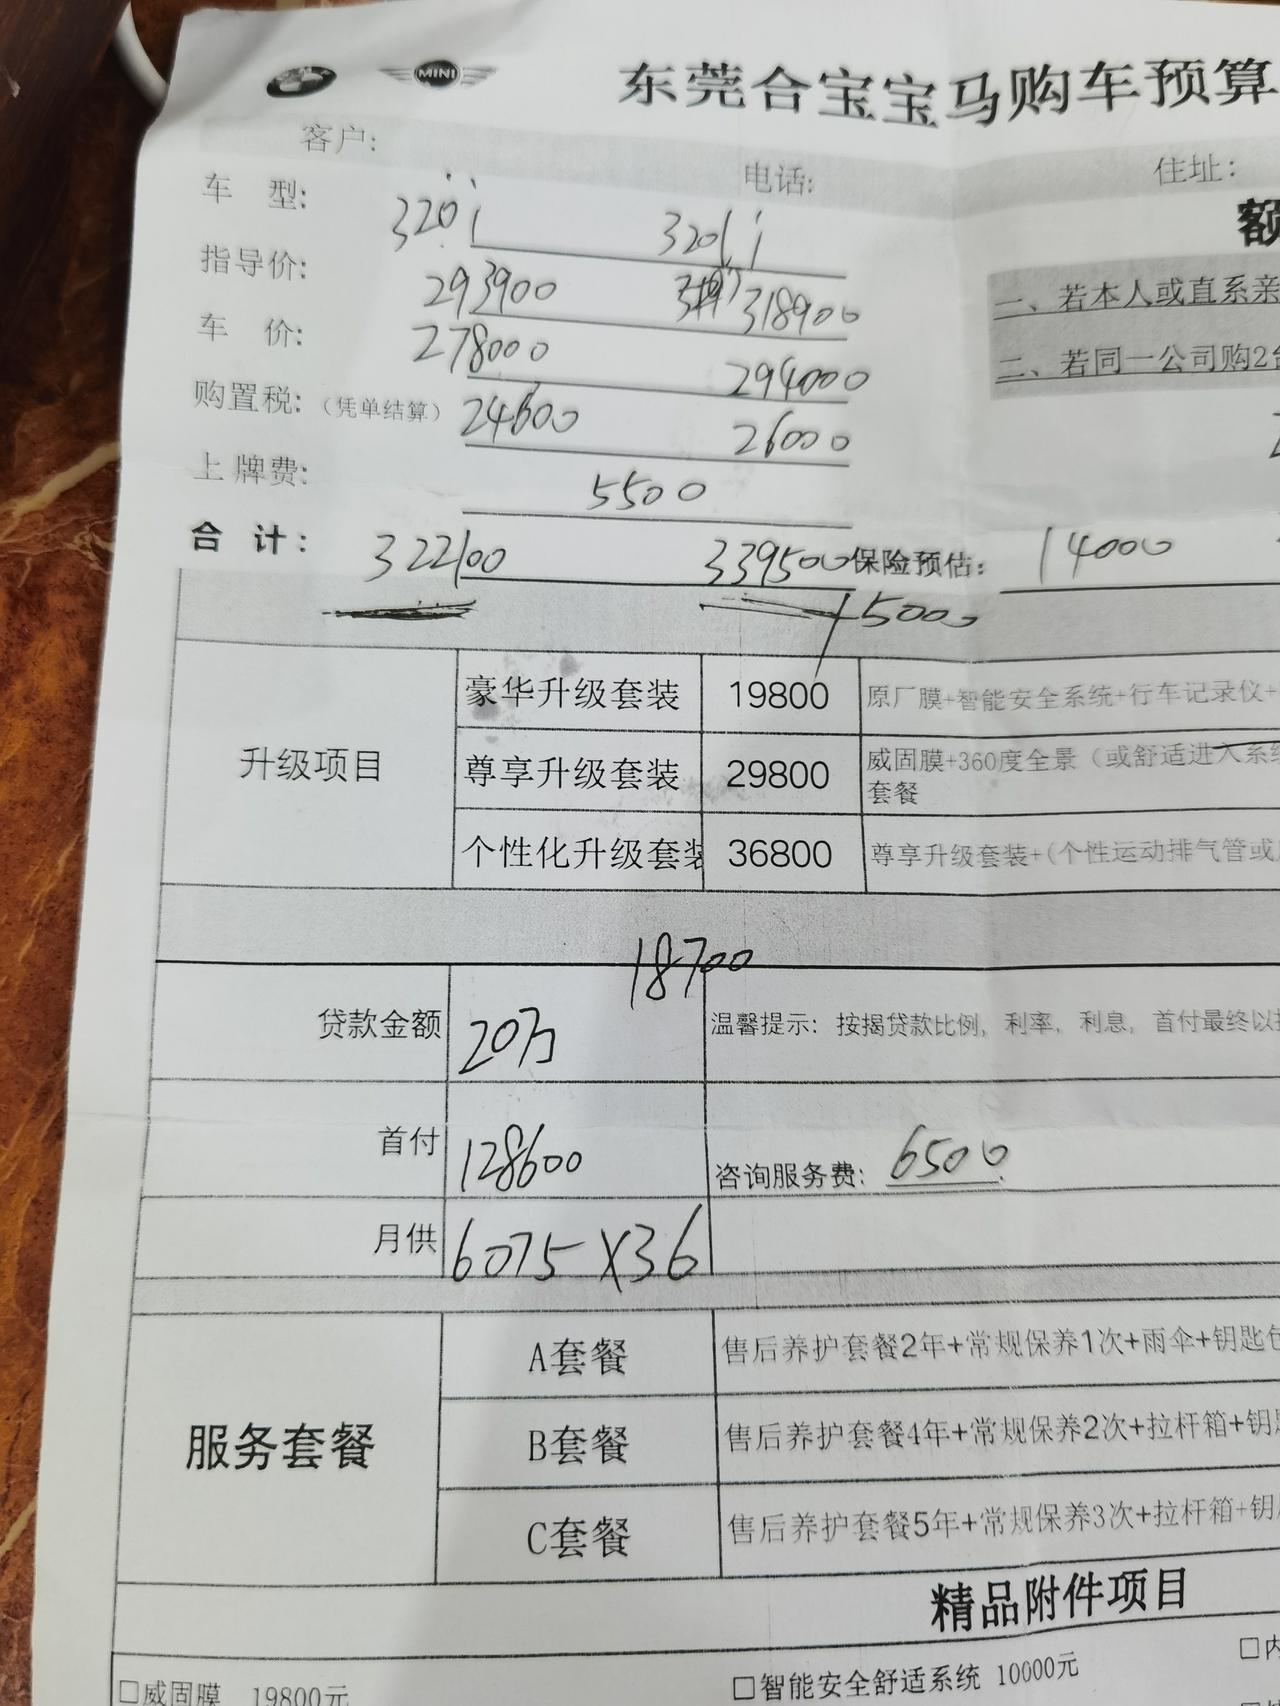 MINI
东莞合宝宝马购车预算
客户:
电话:
住址:
车 型: 320i 320Li
指导价: 293900 318900
车 价: 278000 294000
购置税:(凭单结算) 24600 26000
上牌费: 5500
合 计: 322100 339500 保险预估: 14000
一、若本人或直系亲
二、若同一公司购2
升级项目
豪华升级套装 19800 原厂膜+智能安全系统+行车记录仪+
尊享升级套装 29800 威固膜+360度全景(或舒适进入系统
套餐
个性化升级套装 36800 尊享升级套装+(个性运动排气管或
18700
贷款金额 20万 温馨提示: 按揭贷款比例, 利率, 利息, 首付最终以
首付 128600 咨询服务费: 6500
月供 6075 X36
服务套餐
A套餐 售后养护套餐2年+常规保养1次+雨伞+钥匙包
B套餐 售后养护套餐4年+常规保养2次+拉杆箱+钥
C套餐 售后养护套餐5年+常规保养3次+拉杆箱+钥
精品附件项目
□威固膜 19800元 □智能安全舒适系统 10000元 □内